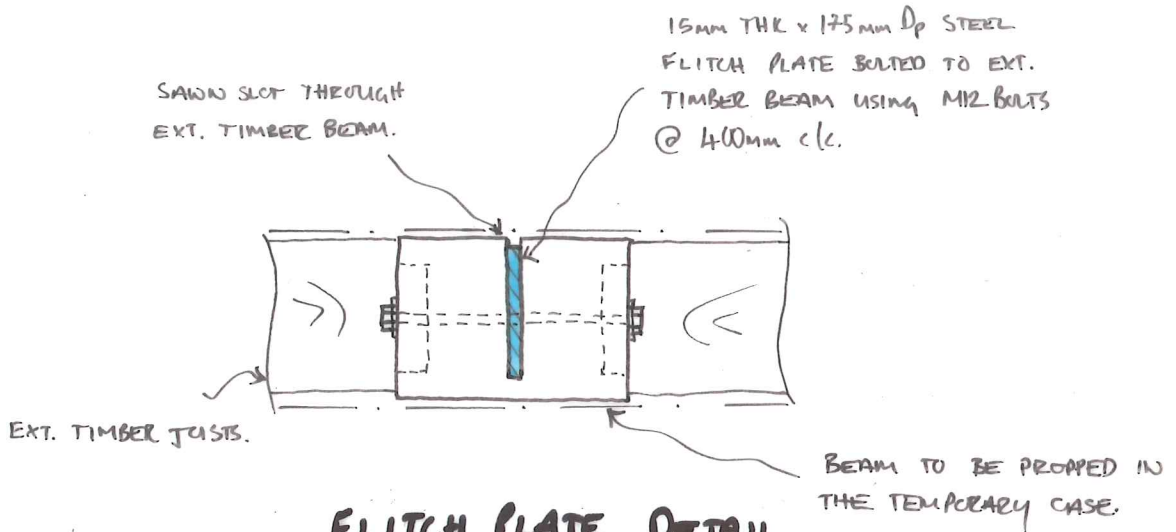 15mm THK x 175mm Dp STEEL
FLITCH PLATE BOLTED TO EXT.
TIMBER BEAM USING M12 BOLTS
@ 400mm c/c.
SAWN SLOT THROUGH
EXT. TIMBER BEAM.
EXT. TIMBER JOISTS.
BEAM TO BE PROPPED IN
THE TEMPORARY CASE.
FLITCH PLATE DETAIL